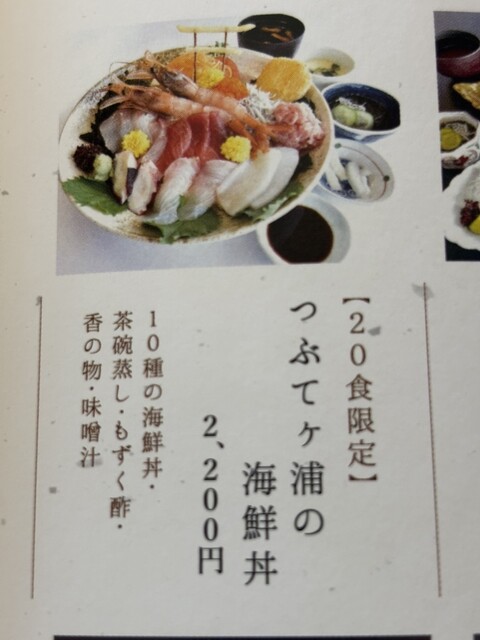 【20食限定】
つぶてヶ浦の
海鮮丼
2,200円
10種の海鮮丼・
茶碗蒸し・もずく酢・
香の物・味噌汁